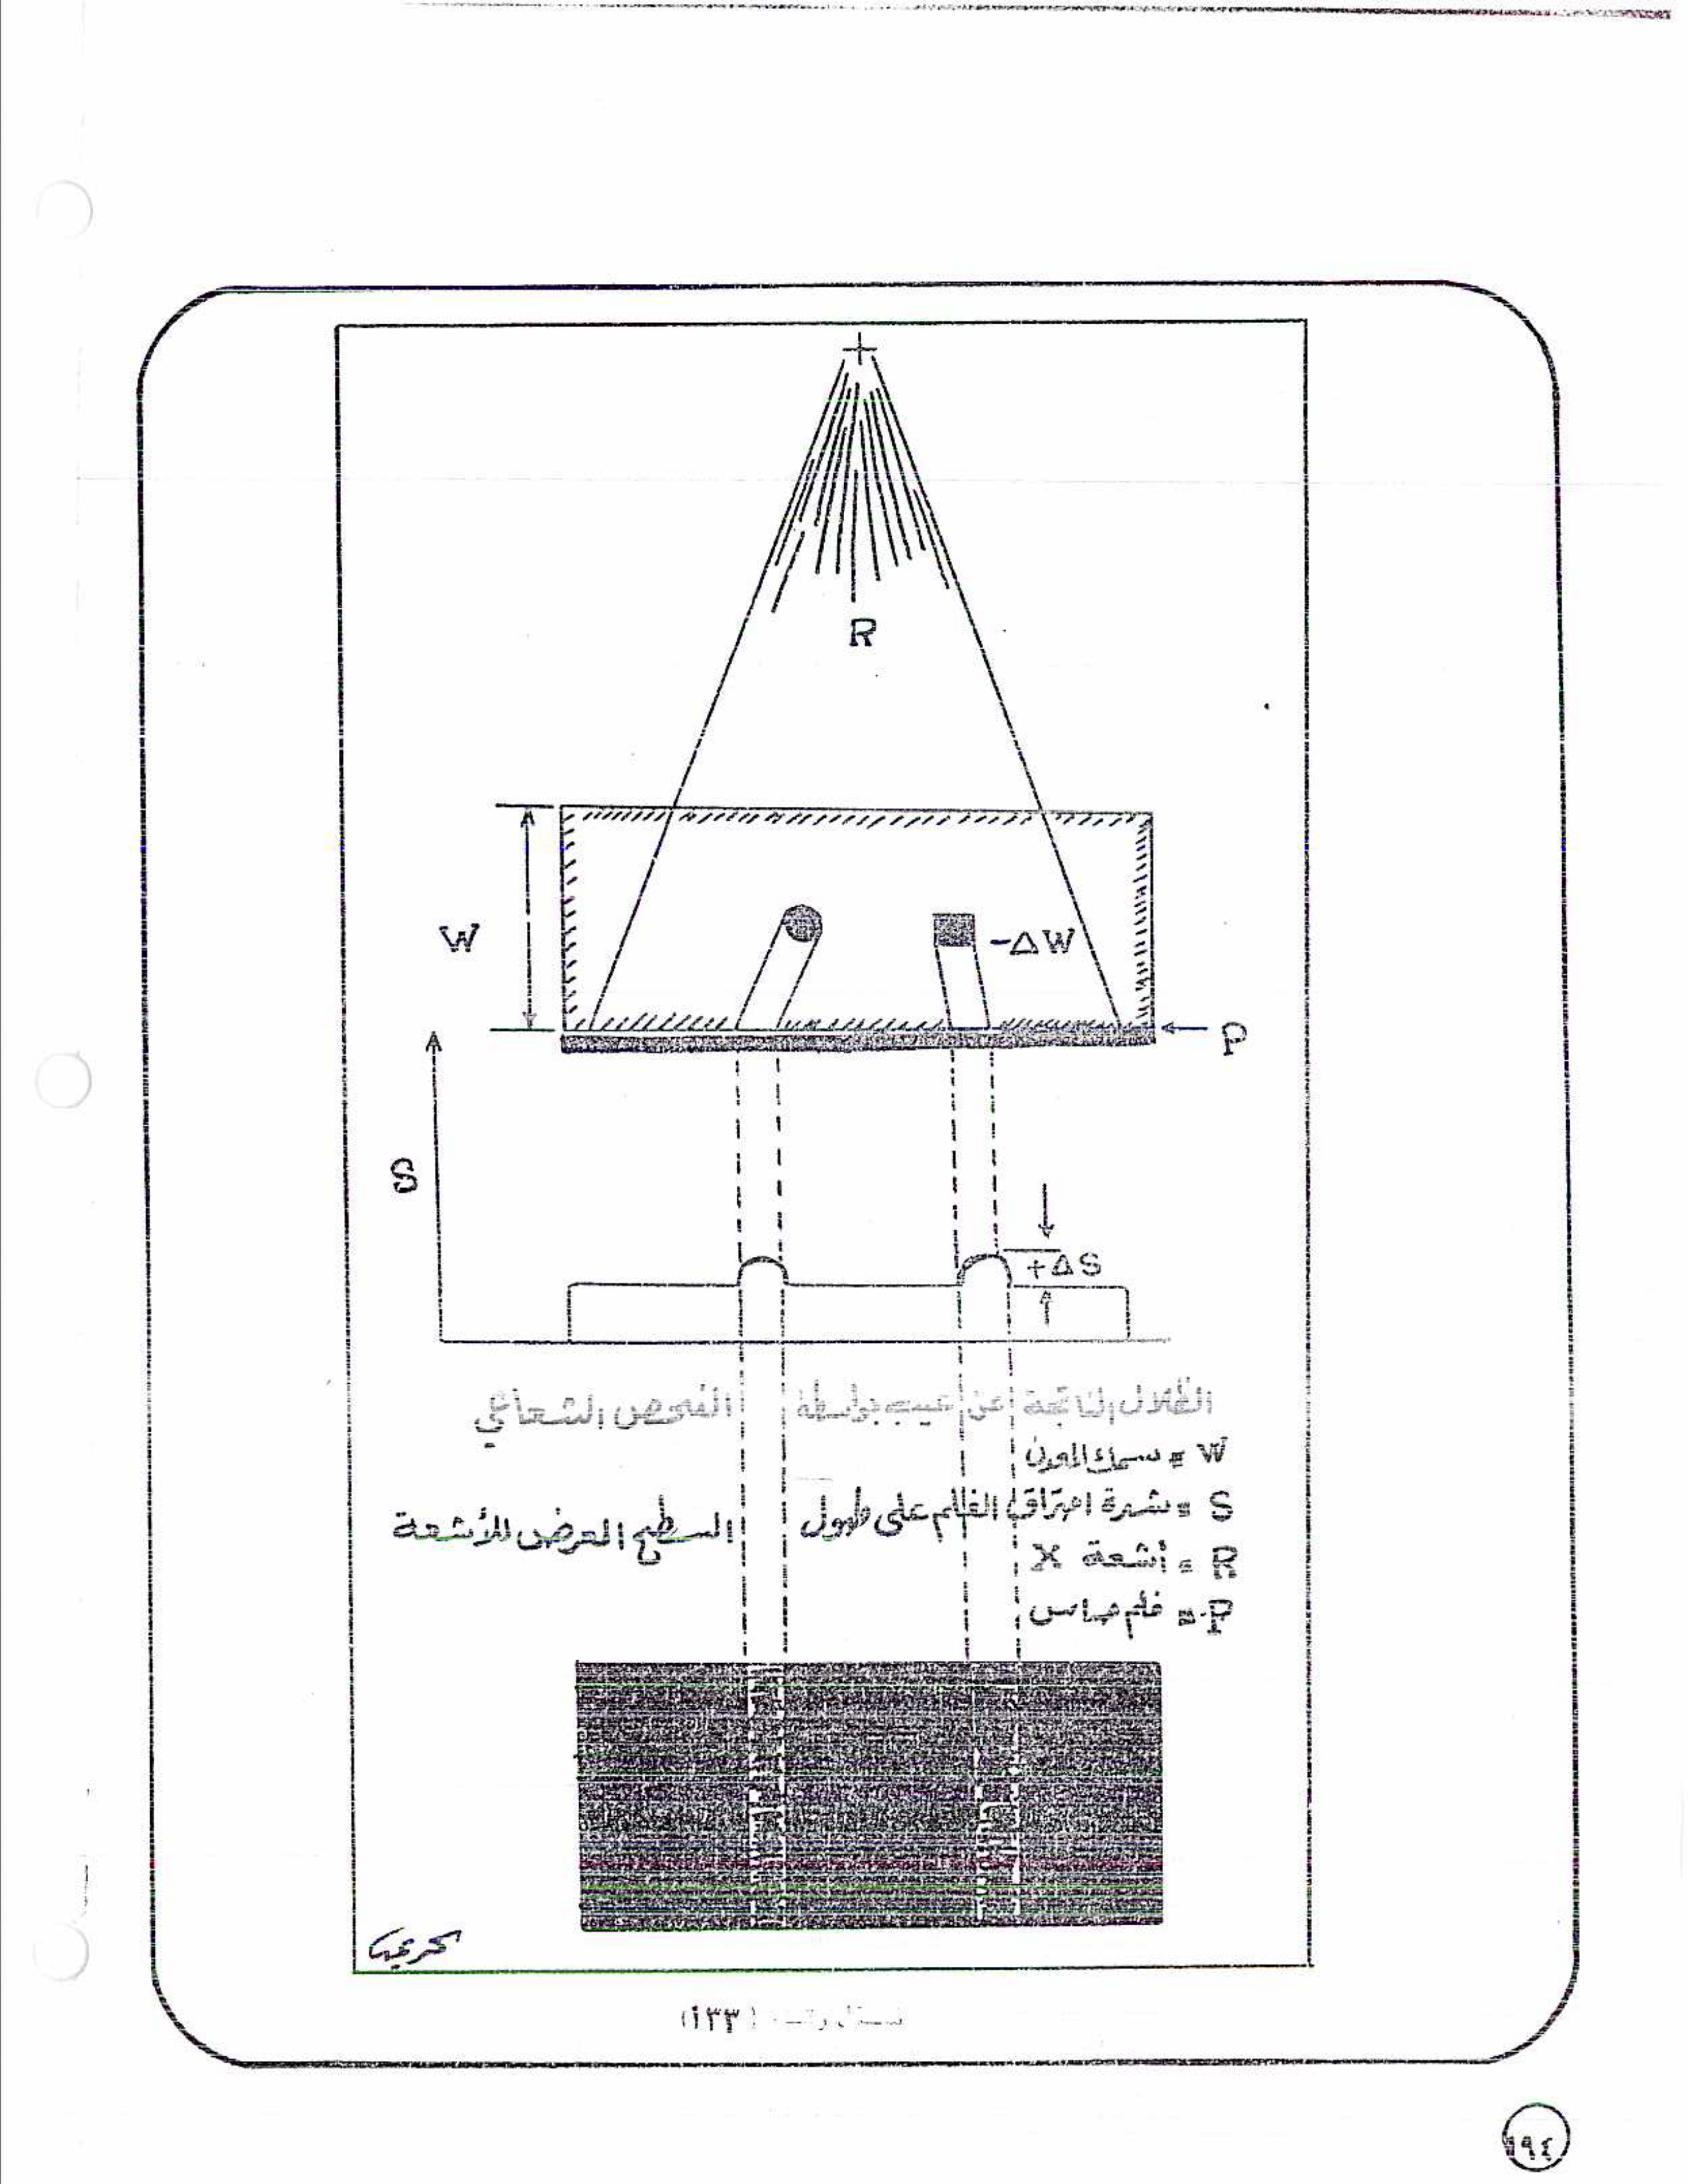 R
W
-ΔW
P
S
+ΔS
الظلال الناتجة عن عيب بواسطة الفحص الشعاعي
W = سمك المعدن
S = شدة اختراق الفلم على طول السطح العرض للأشعة
R = أشعة X
P = فلم حساس
شكل رقم (١٣٣)
١٩٤